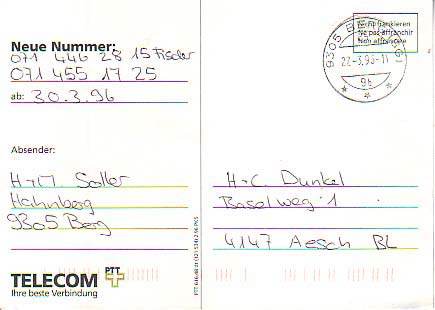 Neue Nummer:
071 446 28 15 Fischer
071 455 17 25
ab: 30.3.96
Absender:
H+M Soller
Hahnberg
9305 Berg
TELECOM PTT
Ihre beste Verbindung
PTT
Nicht frankieren
Ne pas affranchir
Non affrancare
9305 BERG SG
22-3.96-11
H+C Dunkel
Baselweg 1
4147 Aesch BL